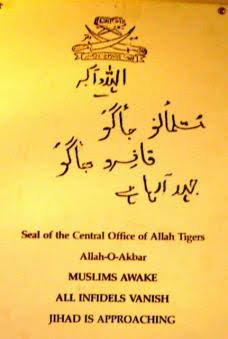 اللہ اکبر
مسلمانو جاگو
کافرو بھاگو
جہاد آرہا ہے
Seal of the Central Office of Allah Tigers
Allah-O-Akbar
MUSLIMS AWAKE
ALL INFIDELS VANISH
JIHAD IS APPROACHING